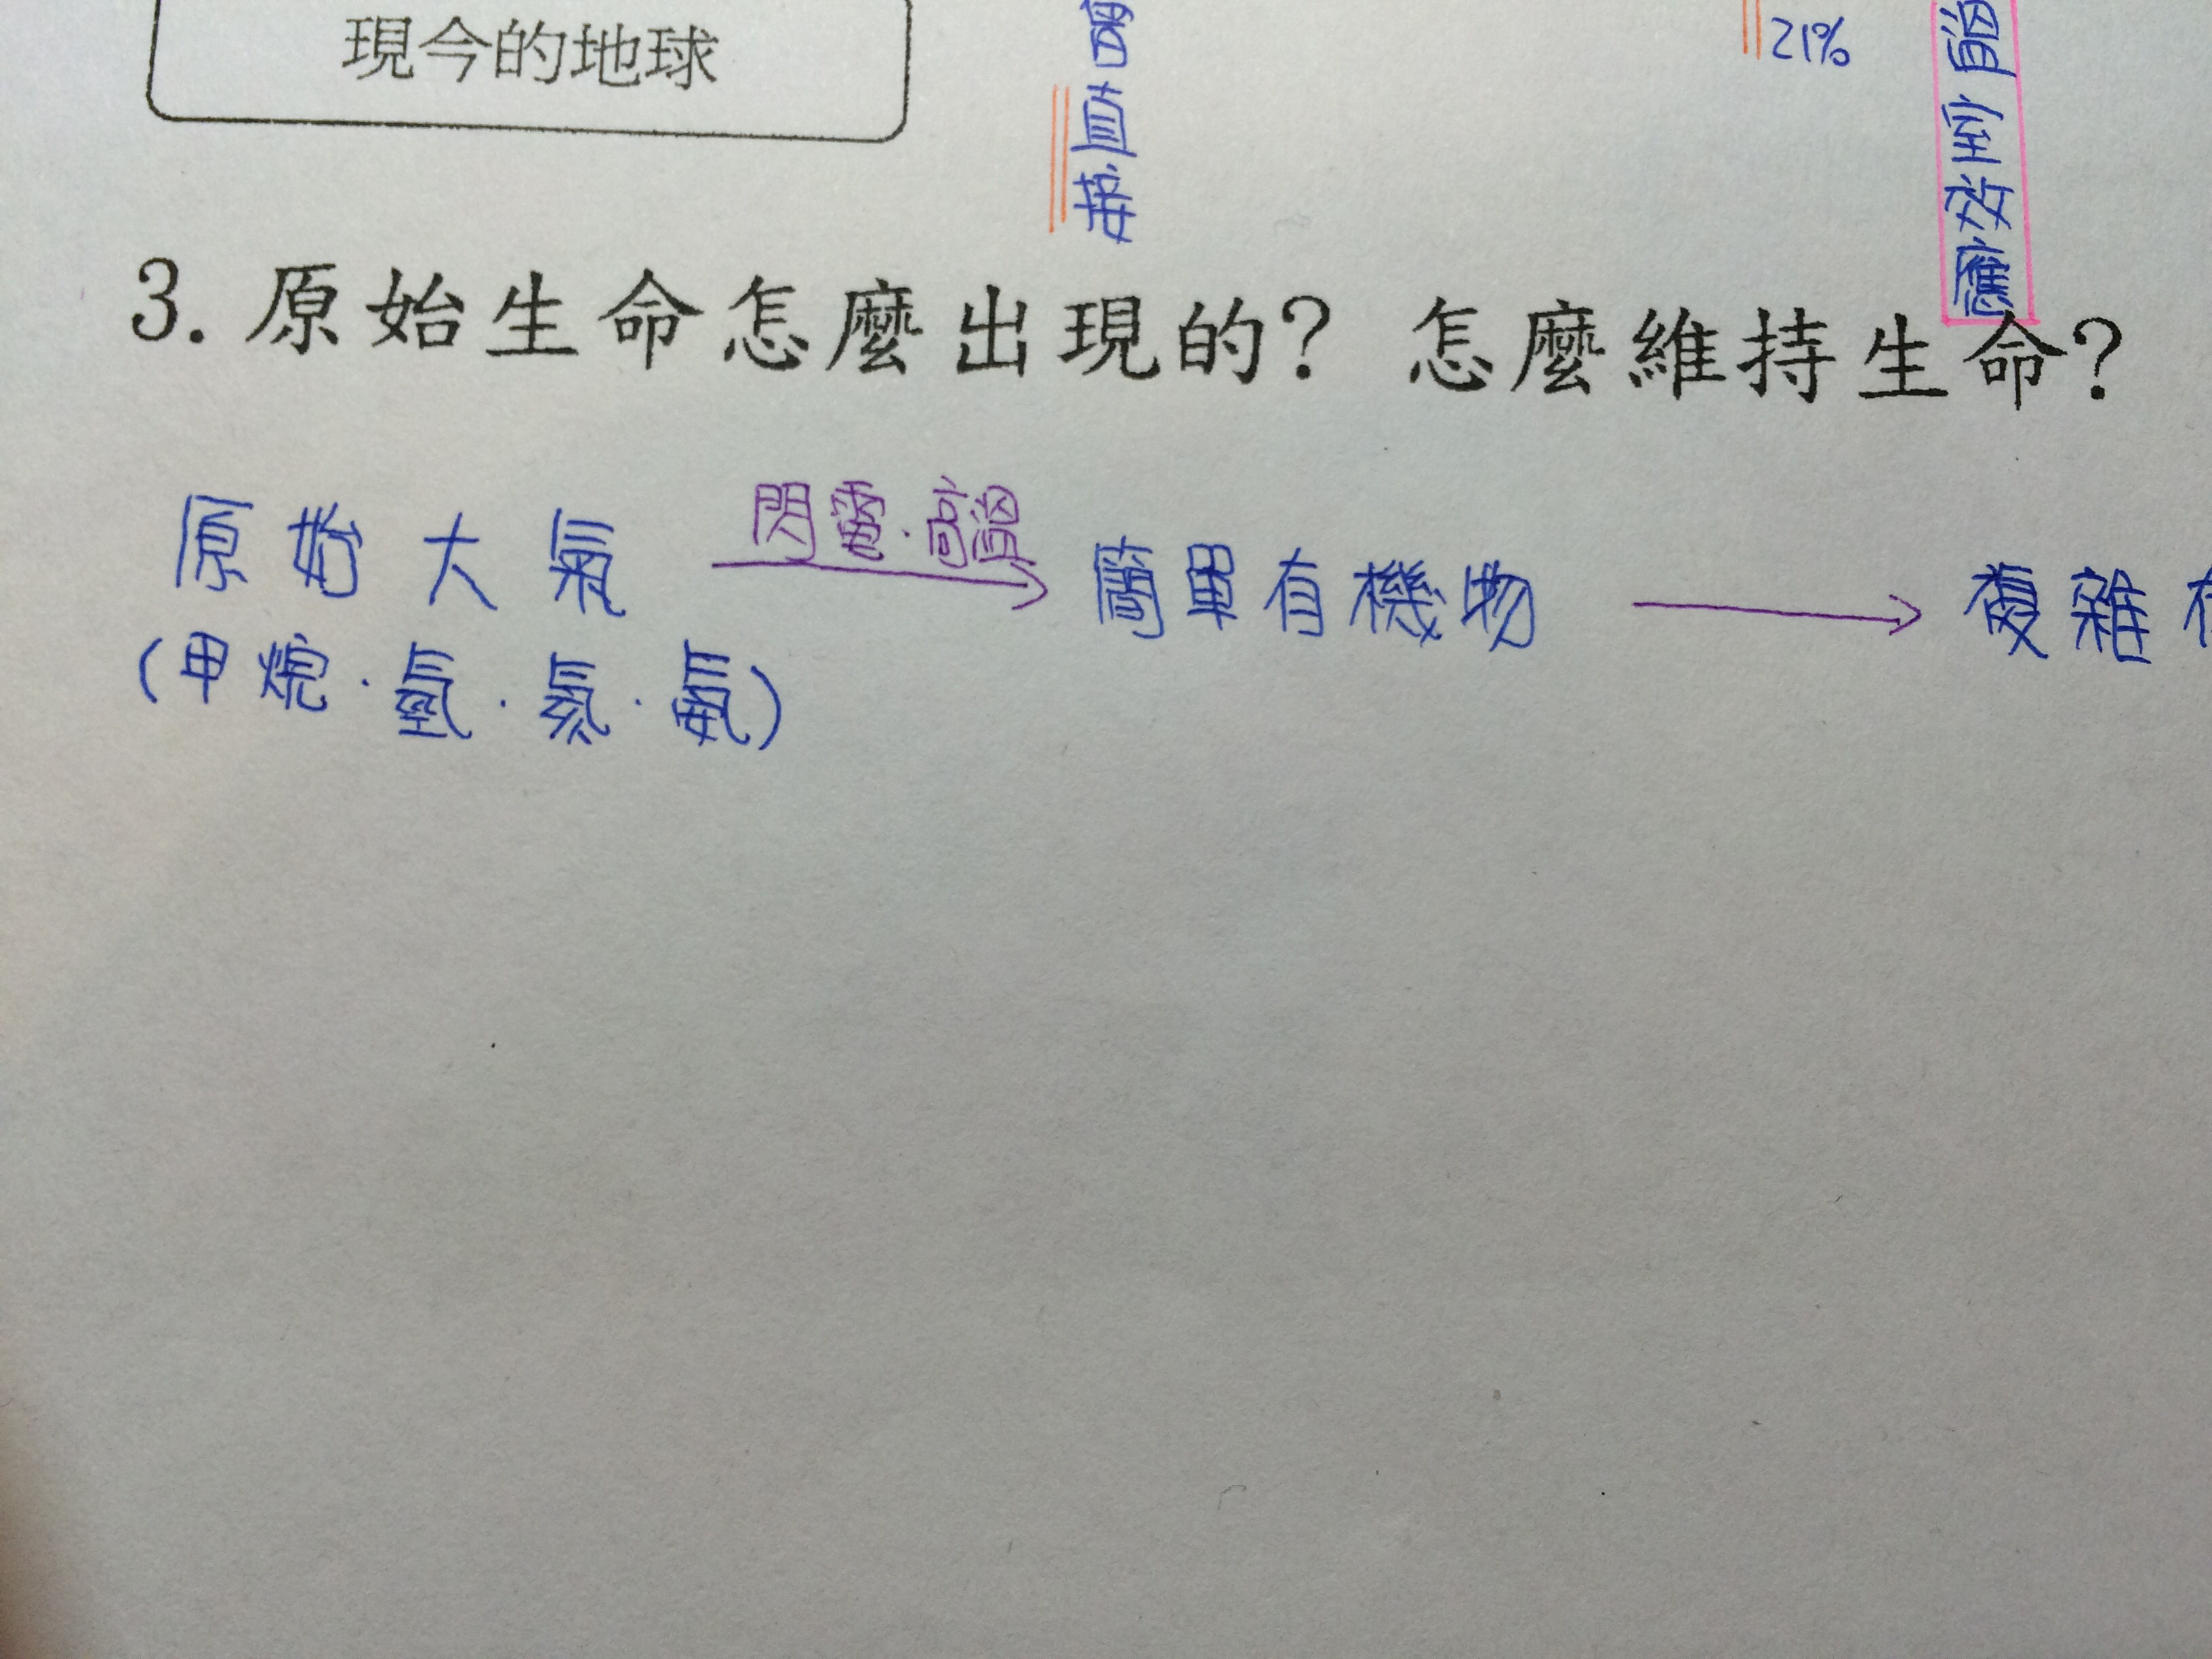 現今的地球
直接
21%
溫室效應
3. 原始生命怎麼出現的? 怎麼維持生命?
原始大氣 閃電·高溫 簡單有機物 複雜
(甲烷·氫·氦·氨)